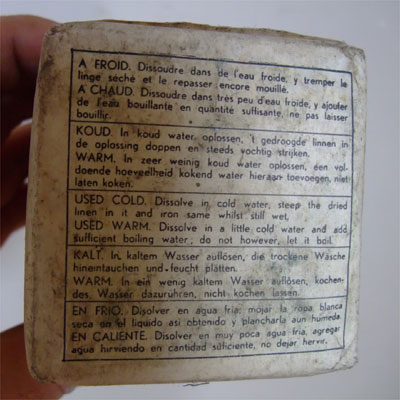 A FROID. Dissoudre dans de l'eau froide, y tremper le
linge séché et le repasser encore mouillé.
A CHAUD. Dissoudre dans très peu d'eau froide, y ajouter
de l'eau bouillante en quantité suffisante, ne pas laisser
bouillir.
KOUD. In koud water oplossen, 't gedroogde linnen in
de oplossing doppen en steeds vochtig strijken.
WARM. In zeer weinig koud water oplossen, een vol-
doende hoeveelheid kokend water hieraan toevoegen, niet
laten koken.
USED COLD. Dissolve in cold water, steep the dried
linen in it and iron same whilst still wet.
USED WARM. Dissolve in a little cold water and add
sufficient boiling water; do not however, let it boil.
KALT. In kaltem Wasser auflösen, die trockene Wäsche
hineintauchen und feucht plätten.
WARM. In ein wenig kaltem Wasser auflösen, kochen-
des Wasser dazurühren, nicht kochen lassen.
EN FRIO. Disolver en agua fria; mojar la ropa blanca
seca en el liquido asi obtenido y plancharla aun humeda.
EN CALIENTE. Disolver en muy poca agua fria, agregar
agua hirviendo en cantidad súficiente, no dejar hervir.